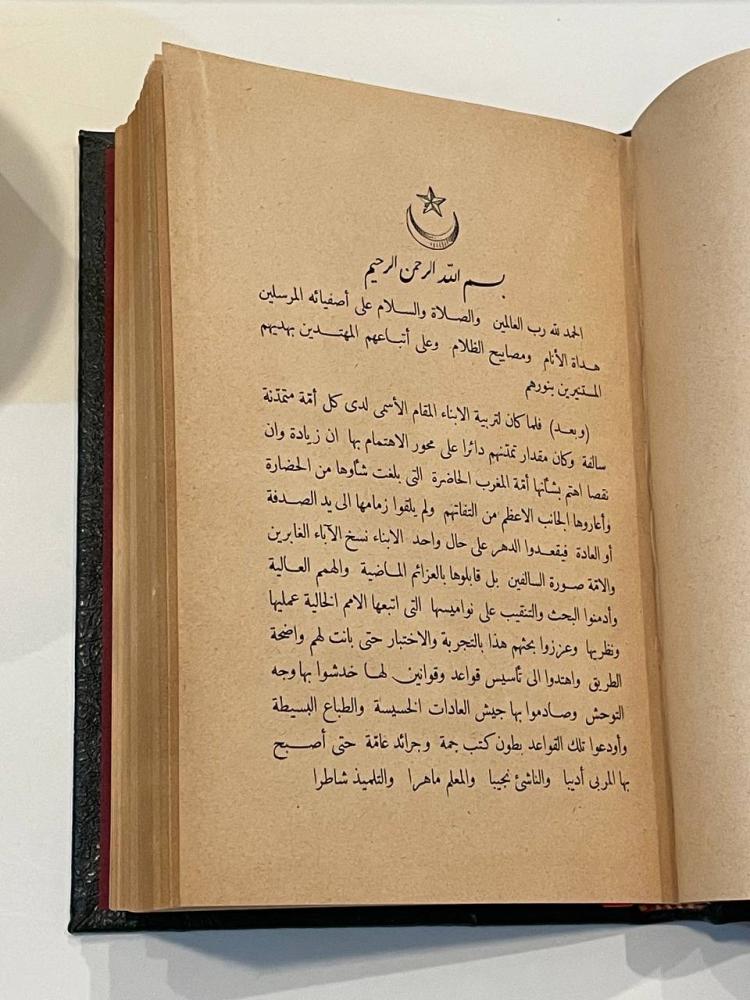 بسم الله الرحمن الرحيم
الحمد لله رب العالمين والصلاة والسلام على أصفيائه المرسلين
هداة الأنام ومصابيح الظلام وعلى أتباعهم المهتدين بهديهم
المستنيرين بنورهم
(وبعد) فلما كان لتربية الابناء المقام الأسمى لدى كل أمّة متمدّنة
سالفة وكان مقدار تمدّنهم دائرا على محور الاهتمام بها ان زيادة وان
نقصا اهتم بشأنها أمّة المغرب الحاضرة التى بلغت شأوها من الحضارة
وأعاروها الجانب الاعظم من التفاتهم ولم يلقوا زمامها الى يد الصدفة
أو العادة فيقعدوا الدهر على حال واحد الابناء نسخ الآباء الغابرين
والامّة صورة السالفين بل قابلوها بالعزائم الماضية والهمم العالية
وأدمنوا البحث والتنقيب على نواميسها التى اتبعها الامم الخالية عمليها
ونظريها وعززوا بحثهم هذا بالتجربة والاختبار حتى بانت لهم واضحة
الطريق واهتدوا الى تأسيس قواعد وقوانين لها خدشوا بها وجه
التوحش وصادموا بها جيش العادات الخسيسة والطباع البسيطة
وأودعوا تلك القواعد بطون كتب جمة وجرائد عامّة حتى أصبح
بها المربى أديبا والناشئ نجيبا والمعلم ماهرا والتلميذ شاطرا